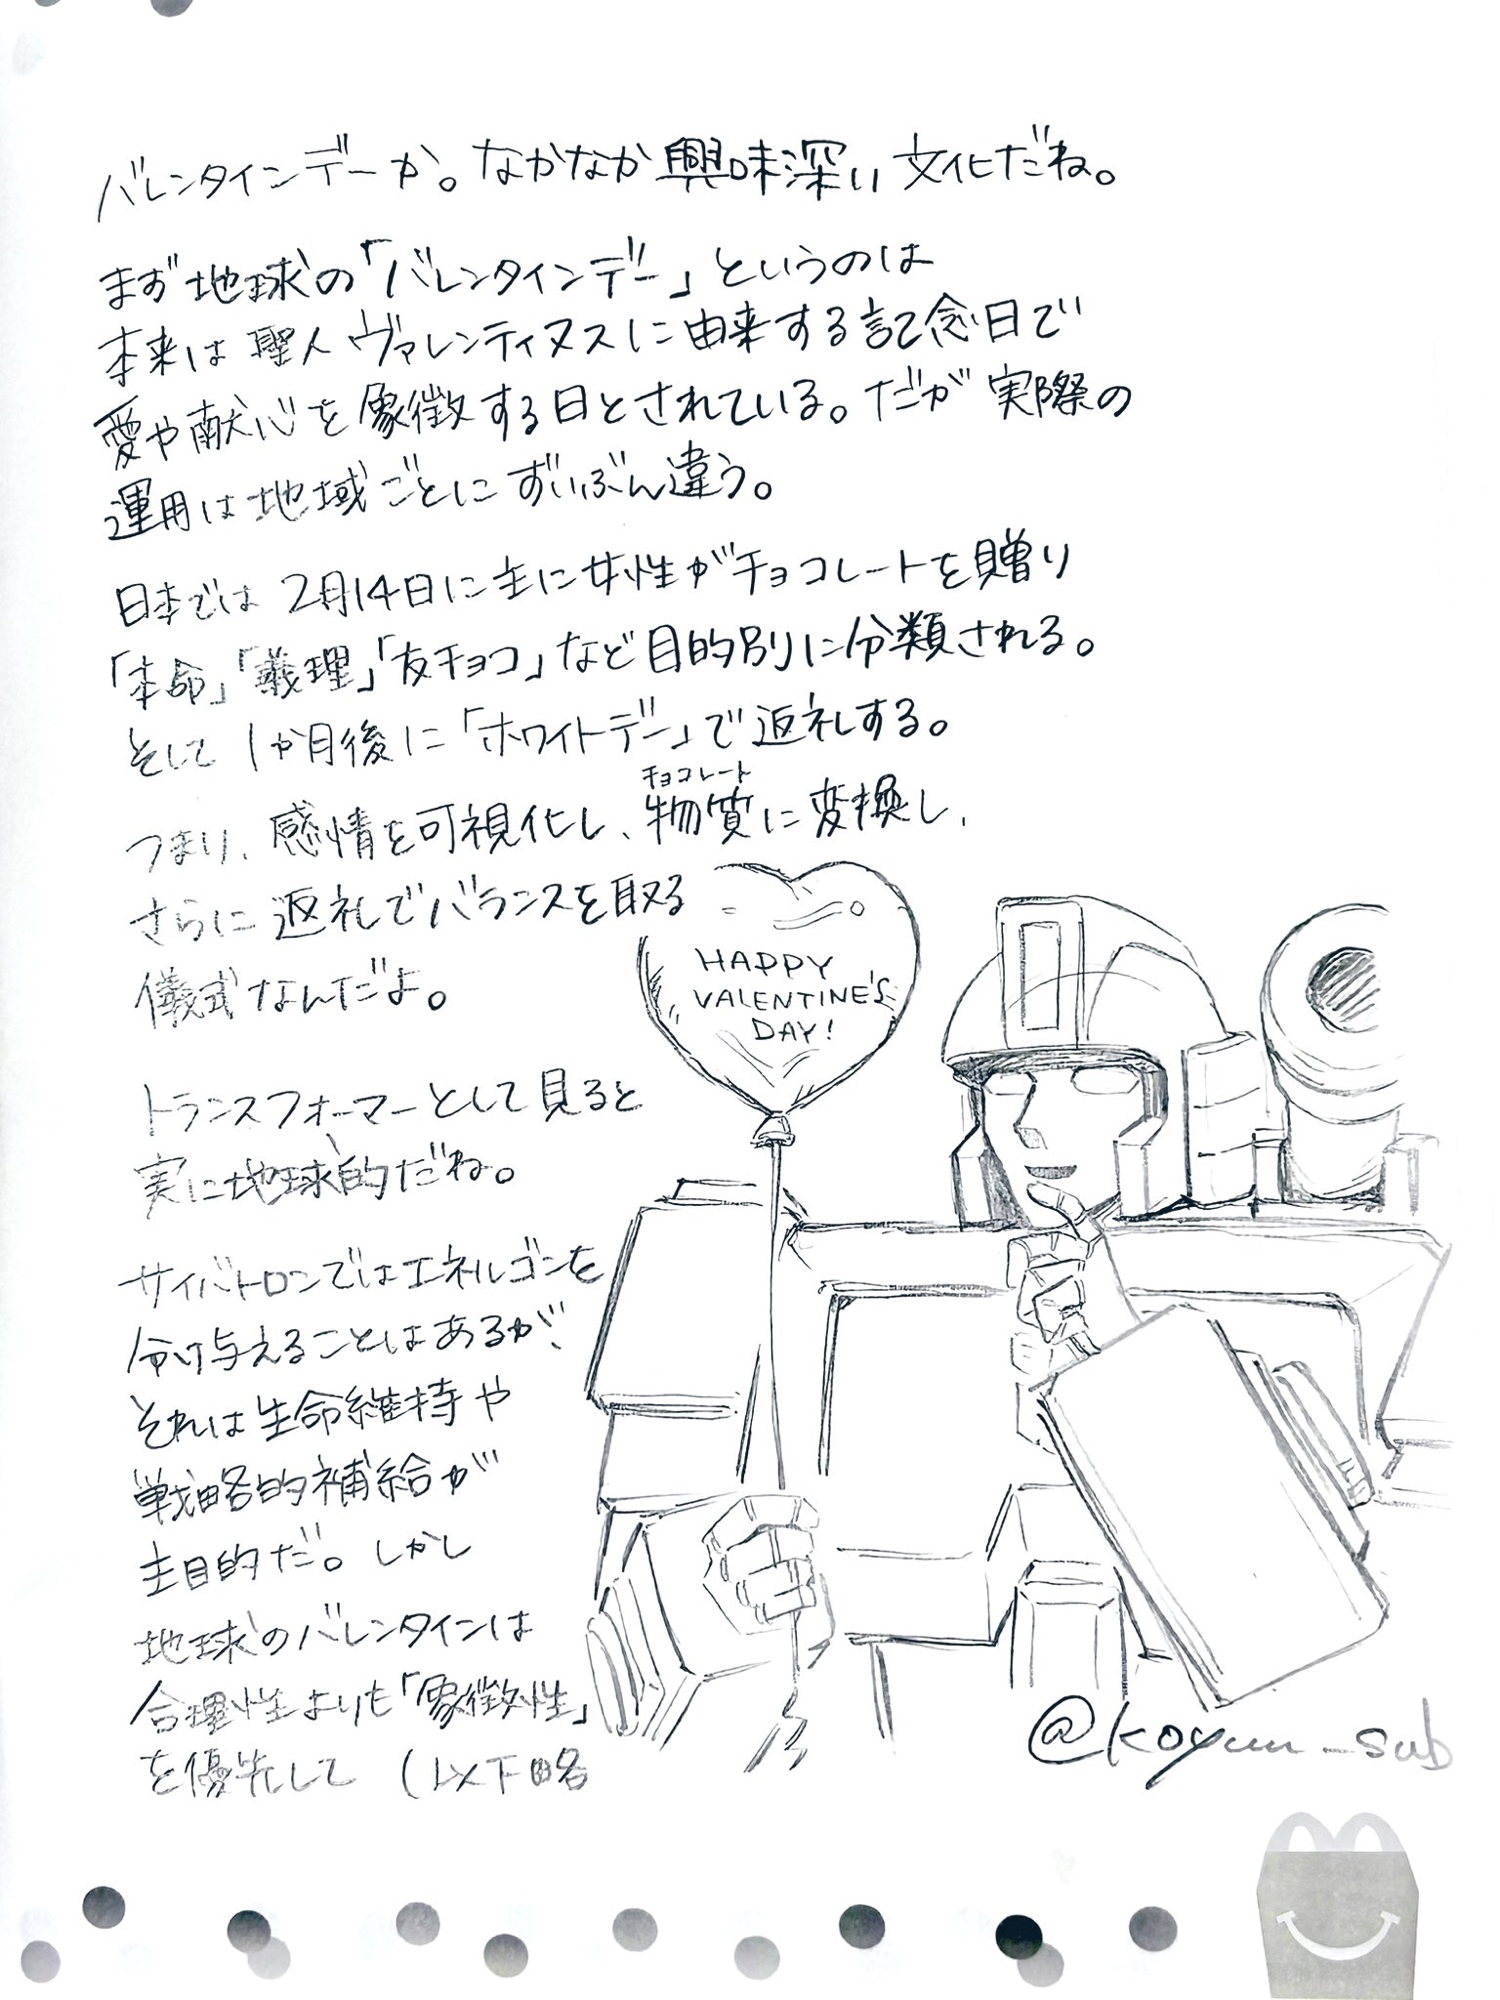 バレンタインデーか。なかなか興味深い文化だね。
まず地球の「バレンタインデー」というのは
本来は聖人ヴァレンティヌスに由来する記念日で
愛や献心を象徴する日とされている。だが実際の
運用は地域ごとにずいぶん違う。
日本では2月14日に主に女性がチョコレートを贈り
「本命」「義理」「友チョコ」など目的別に分類される。
そして1か月後に「ホワイトデー」で返礼する。
チョコレート
つまり、感情を可視化し、物質に変換し、
さらに返礼でバランスを取る
儀式なんだよ。
トランスフォーマーとして見ると
実に地球的だね。
サイバトロンではエネルゴンを
分け与えることはあるが、
それは生命維持や
戦略的補給が
主目的だ。しかし
地球のバレンタインは
合理性よりも「象徴性」
を優先して(以下略
HAPPY
VALENTINE'S
DAY!
@koyuu_sub